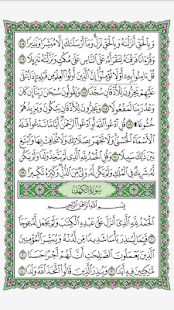 وَبِالْحَقِّ أَنزَلْنَاهُ وَبِالْحَقِّ نَزَلَ وَمَا أَرْسَلْنَاكَ إِلَّا مُبَشِّرًا وَنَذِيرًا ١٠٥
وَقُرْآنًا فَرَقْنَاهُ لِتَقْرَأَهُ عَلَى النَّاسِ عَلَىٰ مُكْثٍ وَنَزَّلْنَاهُ تَنزِيلًا ١٠٦
قُلْ آمِنُوا بِهِ أَوْ لَا تُؤْمِنُوا إِنَّ الَّذِينَ أُوتُوا الْعِلْمَ مِن قَبْلِهِ إِذَا
يُتْلَىٰ عَلَيْهِمْ يَخِرُّونَ لِلْأَذْقَانِ سُجَّدًا ١٠٧ وَيَقُولُونَ سُبْحَانَ رَبِّنَا إِن كَانَ
وَعْدُ رَبِّنَا لَمَفْعُولًا ١٠٨ وَيَخِرُّونَ لِلْأَذْقَانِ يَبْكُونَ وَيَزِيدُهُمْ
خُشُوعًا ۩ ١٠٩ قُلِ ادْعُوا اللَّهَ أَوِ ادْعُوا الرَّحْمَٰنَ أَيًّا مَّا تَدْعُوا فَلَهُ
الْأَسْمَاءُ الْحُسْنَىٰ وَلَا تَجْهَرْ بِصَلَاتِكَ وَلَا تُخَافِتْ بِهَا وَابْتَغِ
بَيْنَ ذَٰلِكَ سَبِيلًا ١١٠ وَقُلِ الْحَمْدُ لِلَّهِ الَّذِي لَمْ يَتَّخِذْ وَلَدًا وَلَمْ يَكُن
لَّهُ شَرِيكٌ فِي الْمُلْكِ وَلَمْ يَكُن لَّهُ وَلِيٌّ مِّنَ الذُّلِّ وَكَبِّرْهُ تَكْبِيرًا ١١١
سُورَةُ الْكَهْفِ
بِسْمِ اللَّهِ الرَّحْمَٰنِ الرَّحِيمِ
الْحَمْدُ لِلَّهِ الَّذِي أَنزَلَ عَلَىٰ عَبْدِهِ الْكِتَابَ وَلَمْ يَجْعَل لَّهُ عِوَجًا ١
قَيِّمًا لِّيُنذِرَ بَأْسًا شَدِيدًا مِّن لَّدُنْهُ وَيُبَشِّرَ الْمُؤْمِنِينَ
الَّذِينَ يَعْمَلُونَ الصَّالِحَاتِ أَنَّ لَهُمْ أَجْرًا حَسَنًا ٢
مَّاكِثِينَ فِيهِ أَبَدًا ٣ وَيُنذِرَ الَّذِينَ قَالُوا اتَّخَذَ اللَّهُ وَلَدًا ٤